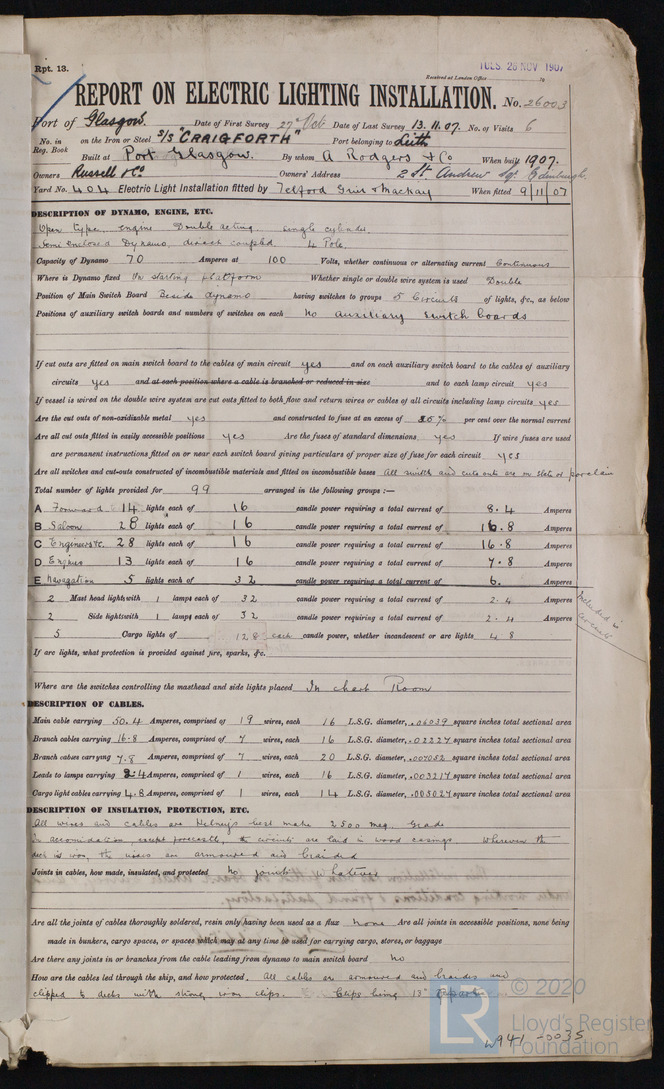 Rpt. 13.
TUES. 26 NOV 1907
Received at London Office
REPORT ON ELECTRIC LIGHTING INSTALLATION. No. 26003
Port of Glasgow. Date of First Survey 27th Oct Date of Last Survey 13.11.07. No. of Visits 6
No. in Reg. Book on the Iron or Steel S/S "CRAIGFORTH" Port belonging to Leith
Built at Port Glasgow. By whom A Rodgers & Co When built 1907.
Owners Russell & Co Owners' Address 2 St. Andrew Sq. Edinburgh
Yard No. 404 Electric Light Installation fitted by Telford Grier & Mackay When fitted 9/11/07
DESCRIPTION OF DYNAMO, ENGINE, ETC.
Open type engine Double acting single cylinder
Semi enclosed Dynamo, direct coupled 4 Pole
Capacity of Dynamo 70 Amperes at 100 Volts, whether continuous or alternating current Continuous
Where is Dynamo fixed On starting platform Whether single or double wire system is used Double
Position of Main Switch Board Beside dynamo having switches to groups 5 Circuits of lights, &c., as below
Positions of auxiliary switch boards and numbers of switches on each No auxiliary switch boards
If cut outs are fitted on main switch board to the cables of main circuit yes and on each auxiliary switch board to the cables of auxiliary
circuits yes and at each position where a cable is branched or reduced in size and to each lamp circuit yes
If vessel is wired on the double wire system are cut outs fitted to both flow and return wires or cables of all circuits including lamp circuits yes
Are the cut outs of non-oxidizable metal yes and constructed to fuse at an excess of % per cent over the normal current
Are all cut outs fitted in easily accessible positions yes Are the fuses of standard dimensions yes If wire fuses are used
are permanent instructions fitted on or near each switch board giving particulars of proper size of fuse for each circuit yes
Are all switches and cut-outs constructed of incombustible materials and fitted on incombustible bases All switch and cut outs are on slate or porcelain
Total number of lights provided for 99 arranged in the following groups :—
A Forward 14 lights each of 16 candle power requiring a total current of 8.4 Amperes
B Saloon 28 lights each of 16 candle power requiring a total current of 16.8 Amperes
C Engineers &c. 28 lights each of 16 candle power requiring a total current of 16.8 Amperes
D Engines 13 lights each of 16 candle power requiring a total current of 7.8 Amperes
E Navagation 5 lights each of 32 candle power requiring a total current of 6. Amperes
2 Mast head light with 1 lamps each of 32 candle power requiring a total current of 2.4 Amperes
2 Side light with 1 lamps each of 32 candle power requiring a total current of 2.4 Amperes
Included in circuit
5 Cargo lights of 128 each candle power, whether incandescent or arc lights 48
If arc lights, what protection is provided against fire, sparks, &c.
Where are the switches controlling the masthead and side lights placed In chart Room
DESCRIPTION OF CABLES.
Main cable carrying 50.4 Amperes, comprised of 19 wires, each 16 L.S.G. diameter, .06039 square inches total sectional area
Branch cables carrying 16.8 Amperes, comprised of 7 wires, each 16 L.S.G. diameter, .02227 square inches total sectional area
Branch cables carrying 7.8 Amperes, comprised of 7 wires, each 20 L.S.G. diameter, .007052 square inches total sectional area
Leads to lamps carrying Amperes, comprised of 1 wires, each 16 L.S.G. diameter, .003217 square inches total sectional area
Cargo light cables carrying 4.8 Amperes, comprised of 1 wires, each 14 L.S.G. diameter, .005027 square inches total sectional area
DESCRIPTION OF INSULATION, PROTECTION, ETC.
All wires and cables are Henley's best make 2500 meg. Grade
In accomidation, except forecastle, the circuits are laid in wood casings. Wherever the
deck is iron, the wires are armoured and braided
Joints in cables, how made, insulated, and protected No joints whatever
Are all the joints of cables thoroughly soldered, resin only having been used as a flux None Are all joints in accessible positions, none being
made in bunkers, cargo spaces, or spaces which may at any time be used for carrying cargo, stores, or baggage
Are there any joints in or branches from the cable leading from dynamo to main switch board No
How are the cables led through the ship, and how protected. All cables are armoured and braided and
clipped to decks with strong iron clips. Clips being 18" apart
© 2020
LR Lloyd's Register Foundation
W941-0035